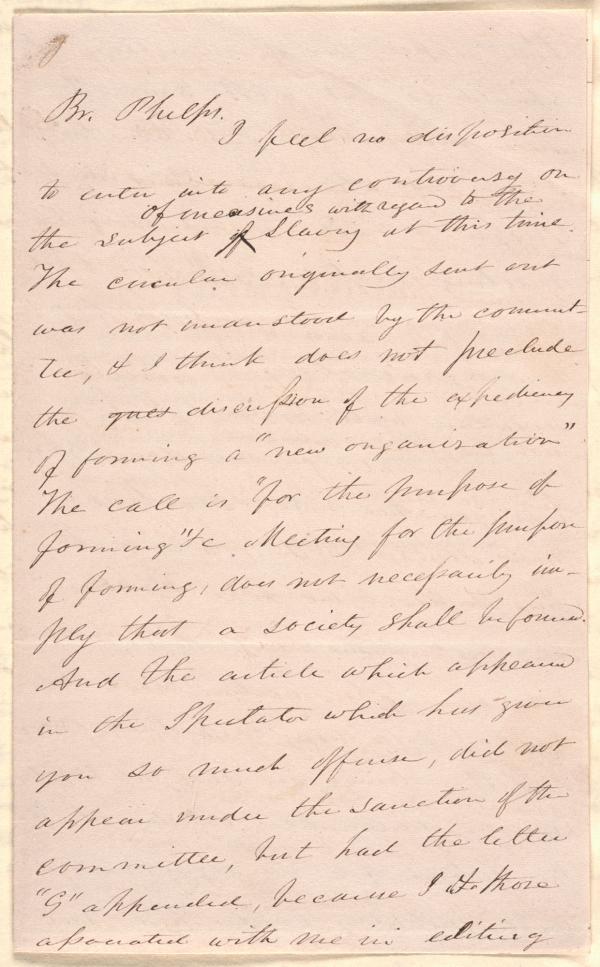 Br. Phelps.
I feel no disposition
to enter into any controversy on
of measures with regard to the
the subject of Slavery at this time.
The circular originally sent out
was not understood by the commit-
tee, & I think does not preclude
the ques discussion of the expediency
of forming a "new organization"
The call is "for the purpose of
forming" &c Meeting for the purpose
of forming, does not necessarily im-
ply that a society shall be formed.
And the article which appeared
in the Spectator which has given
you so much offense, did not
appear under the sanction of the
committee, but had the letter
"G" appended, because I & those
associated with me in editing